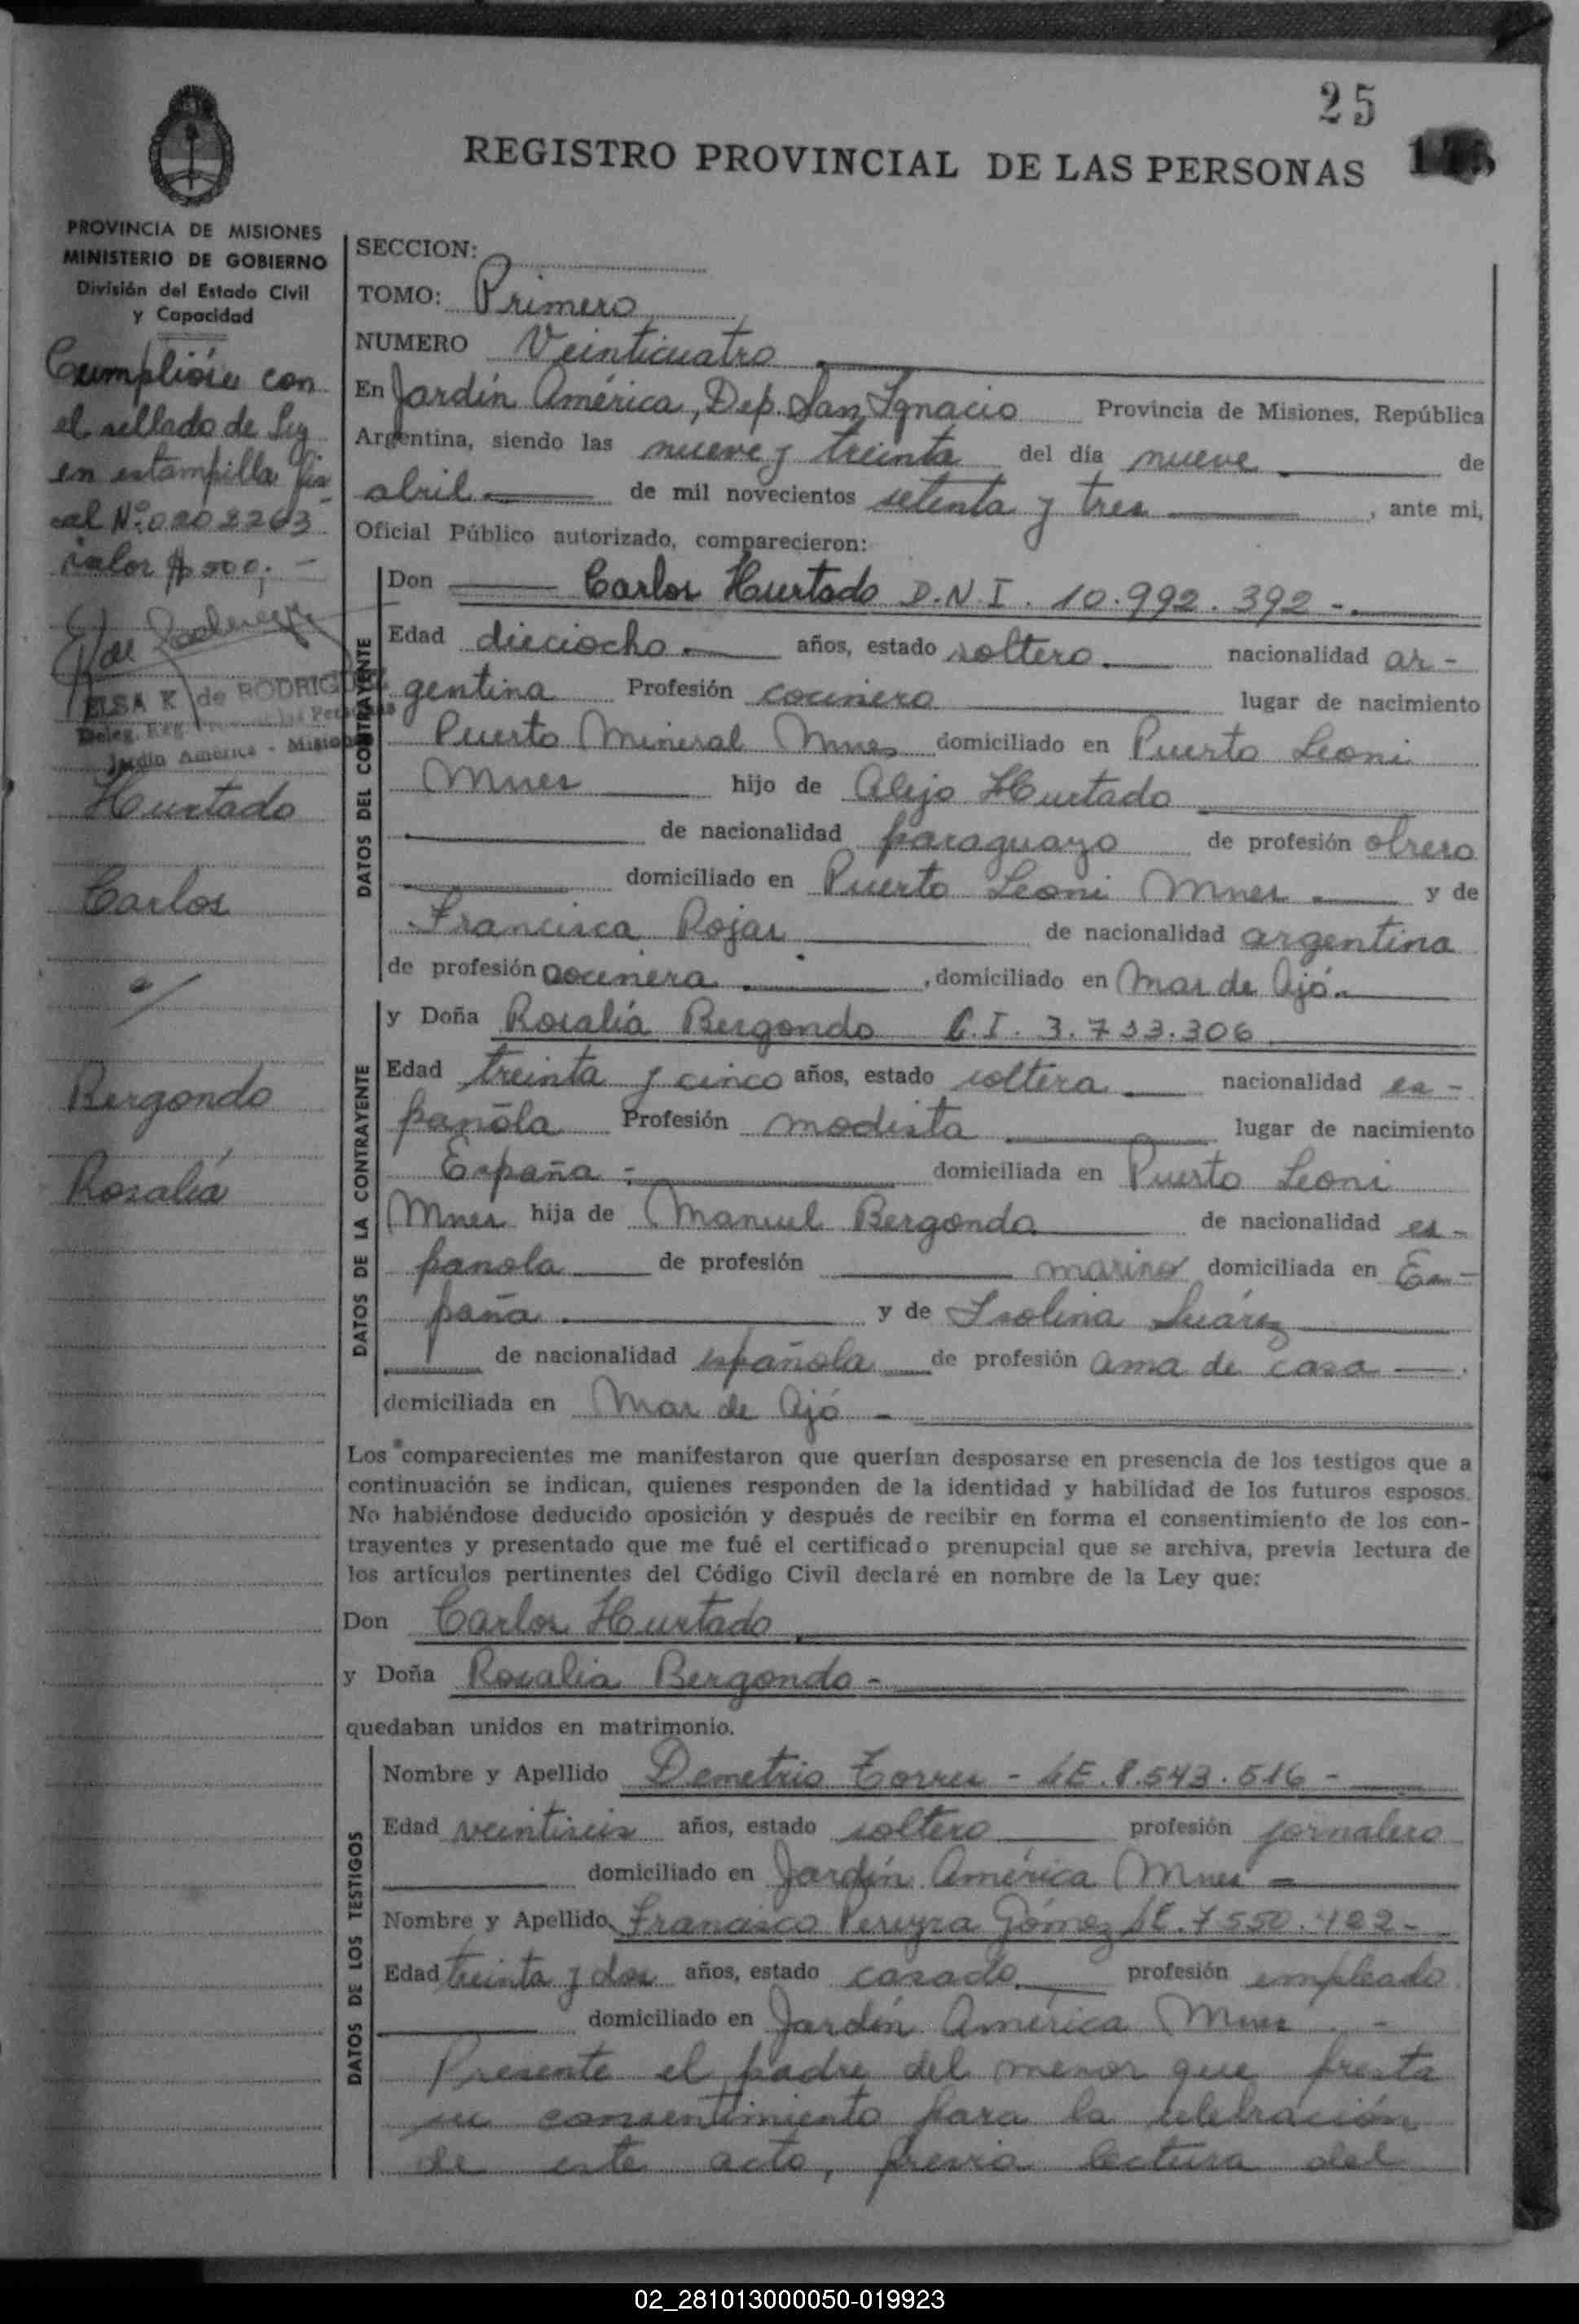 25
REGISTRO PROVINCIAL DE LAS PERSONAS
PROVINCIA DE MISIONES
MINISTERIO DE GOBIERNO
División del Estado Civil
y Capacidad
Cumplióse con
el sellado de Ley
en estampilla fis
cal Nº 0202263
valor $ 500,-
ELSA K de RODRIG
Deleg. Reg
Jardín América - Misiones
Hurtado
Carlos
c/
Bergondo
Rosalía
SECCION:
TOMO: Primero
NUMERO Veinticuatro
En Jardín América, Dep. San Ignacio Provincia de Misiones, República
Argentina, siendo las nueve y treinta del día nueve de
abril de mil novecientos setenta y tres, ante mi,
Oficial Público autorizado, comparecieron:
DATOS DEL CONTRAYENTE
Don Carlos Hurtado D.N.I. 10.992.392-.
Edad dieciocho años, estado soltero nacionalidad ar-
gentina Profesión cocinero lugar de nacimiento
Puerto Mineral Mnes domiciliado en Puerto Leoni
Mnes hijo de Alejo Hurtado
de nacionalidad paraguayo de profesión obrero
domiciliado en Puerto Leoni Mnes y de
Francisca Rojas de nacionalidad argentina
de profesión cocinera, domiciliado en Mar de Ajó.
DATOS DE LA CONTRAYENTE
y Doña Rosalía Bergondo C.I. 3.733.306
Edad treinta y cinco años, estado soltera nacionalidad es-
pañola Profesión modista lugar de nacimiento
España domiciliada en Puerto Leoni
Mnes hija de Manuel Bergondo de nacionalidad es-
panola de profesión marino domiciliada en Es-
paña y de Isolina Suárez
de nacionalidad española de profesión ama de casa
domiciliada en Mar de Ajó -
Los comparecientes me manifestaron que querían desposarse en presencia de los testigos que a
continuación se indican, quienes responden de la identidad y habilidad de los futuros esposos.
No habiéndose deducido oposición y después de recibir en forma el consentimiento de los con-
trayentes y presentado que me fué el certificado prenupcial que se archiva, previa lectura de
los artículos pertinentes del Código Civil declaré en nombre de la Ley que:
Don Carlos Hurtado
y Doña Rosalia Bergondo -
quedaban unidos en matrimonio.
DATOS DE LOS TESTIGOS
Nombre y Apellido Demetrio Torres - LE. 8.543.516 -
Edad veintiseis años, estado soltero profesión jornalero
domiciliado en Jardín América Mnes
Nombre y Apellido Francisco Pereyra Gómez LE. 7550.422-
Edad treinta y dos años, estado casado profesión empleado
domiciliado en Jardín América Mnes -
Presente el padre del menor que presta
su consentimiento para la celebración
de este acto, previa lectura del
02_281013000050-019923